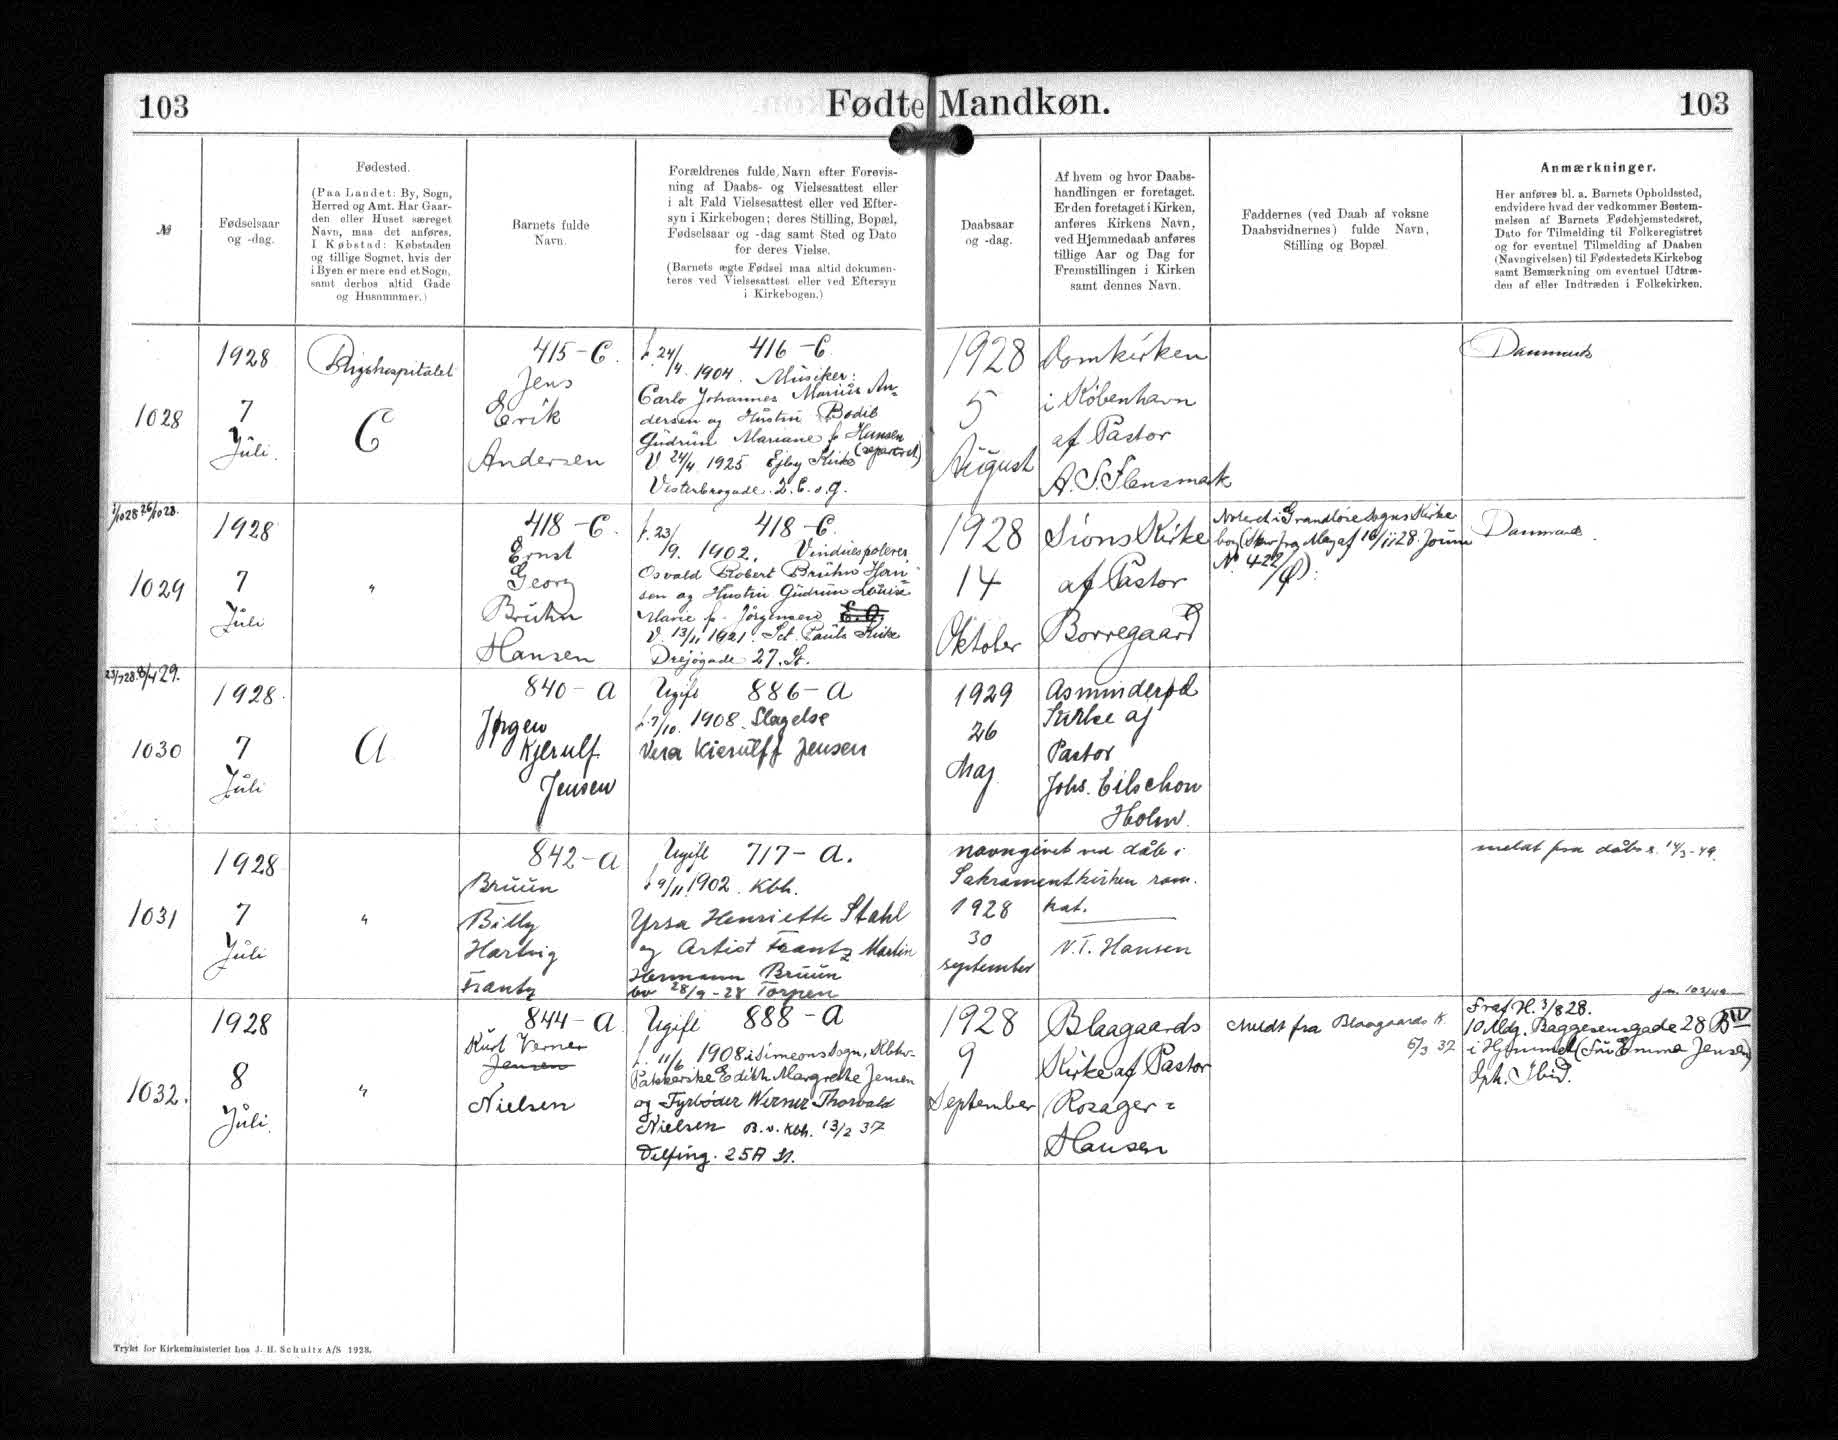 103
Fødte Mandkøn.
103
№
Fødselsaar
og -dag.
Fødested.
(Paa Landet: By, Sogn,
Herred og Amt. Har Gaar-
den eller Huset særeget
Navn, maa det anføres.
I Købstad: Købstaden
og tillige Sognet, hvis der
i Byen er mere end et Sogn,
samt derhos altid Gade
og Husnummer.)
Barnets fulde
Navn.
Forældrenes fulde Navn efter Forevis-
ning af Daabs- og Vielsesattest eller
i alt Fald Vielsesattest eller ved Efter-
syn i Kirkebogen; deres Stilling, Bopæl,
Fødselsaar og -dag samt Sted og Dato
for deres Vielse.
(Barnets ægte Fødsel maa altid dokumen-
teres ved Vielsesattest eller ved Eftersyn
i Kirkebogen.)
Daabsaar
og -dag.
Af hvem og hvor Daabs-
handlingen er foretaget.
Er den foretaget i Kirken,
anføres Kirkens Navn,
ved Hjemmedaab anføres
tillige Aar og Dag for
Fremstillingen i Kirken
samt dennes Navn.
Faddernes (ved Daab af voksne
Daabsvidnernes) fulde Navn,
Stilling og Bopæl.
Anmærkninger.
Her anføres bl. a. Barnets Opholdssted,
endvidere hvad der vedkommer Bestem-
melsen af Barnets Fødehjemstedsret,
Dato for Tilmelding til Folkeregistret
og for eventuel Tilmelding af Daaben
(Navngivelsen) til Fødestedets Kirkebog
samt Bemærkning om eventuel Udtræ-
den af eller Indtræden i Folkekirken.
1028
1928
7
Juli.
Rigshospitalet
C
415-C.
Jens
Erik
Andersen
416-C.
f. 24/4 1904. Musiker:
Carlo Johannes Marius An=
dersen og Hustru Bodil
Gudrun Mariane f. Hansen
(separeret)
V. 24/4 1925 Ejby Kirke
Vesterbrogade. 2. C. o. g.
1928
5
August
Domkirken
i København
af Pastor
A. S. Flensmark
Danmark
1/10 28 26/10 28.
1029
1928
7
Juli
"
418-C.
Ernst
Georg
Bruhn
Hansen
418-C.
f. 23/9. 1902. Vinduespolerer
Osvald Robert Bruhn Han=
sen og Hustru Gudrun Louise
Marie f. Jörgensen
V. 13/11 1921. Sct. Pauls Kirke
Drejøgade 27. St.
1928
14
Oktober
Sions Kirke
af Pastor
Borregaard
Noteret i Grandløse Sogns Kirke
bog af 16/11 28. Journ
N° 422
Danmark.
1030
1928.
7
Juli
A
840-A
Jørgen
Kjerulf
Jensen
Ugift 886-A
f. 7/10. 1908. Slagelse
Vera Kierulff Jensen
1929
26
Maj
Asminderød
Kirke af
Pastor
Johs. Eilschou
Holm.
1031
1928
7
Juli
"
842-A
Bruun
Billy
Hartvig
Frantz
Ugift 717-A.
f 9/11 1902. Kbh.
Yrsa Henriette Stahl
og Artist Frantz Martin
Hermann Bruun
bv 28/9-28 Torpen
navngivet ved dåb i
Sakramentkirken rom.
kat.
1928
30
september
V. T. Hansen
meldt fra dåbs r. 14/3-49.
jn. 103/49
1032.
1928
8
Juli.
"
844-A
Kurt Verner
Jensen
Nielsen
Ugift 888-A
f. 11/6 1908 i Simeons Sogn, Kbhv.
Pakkerske Edith Margrethe Jensen
og Fyrbøder Werner Thorvald
Nielsen B.v. Kbh. 13/2 37
Delfing. 25A St.
1928
9
September
Blaagaards
Kirke af Pastor
Rosager=
Hansen
Meldt fra Blaagaards K.
6/3 37
Fraf. H. 3/8 28.
10 Mdg. Baggesensgade 28 B IV
i Hjemmet (Fru Emma Jensen)
Oph. Ibid.
Trykt for Kirkeministeriet hos J. H. Schultz A/S 1928.